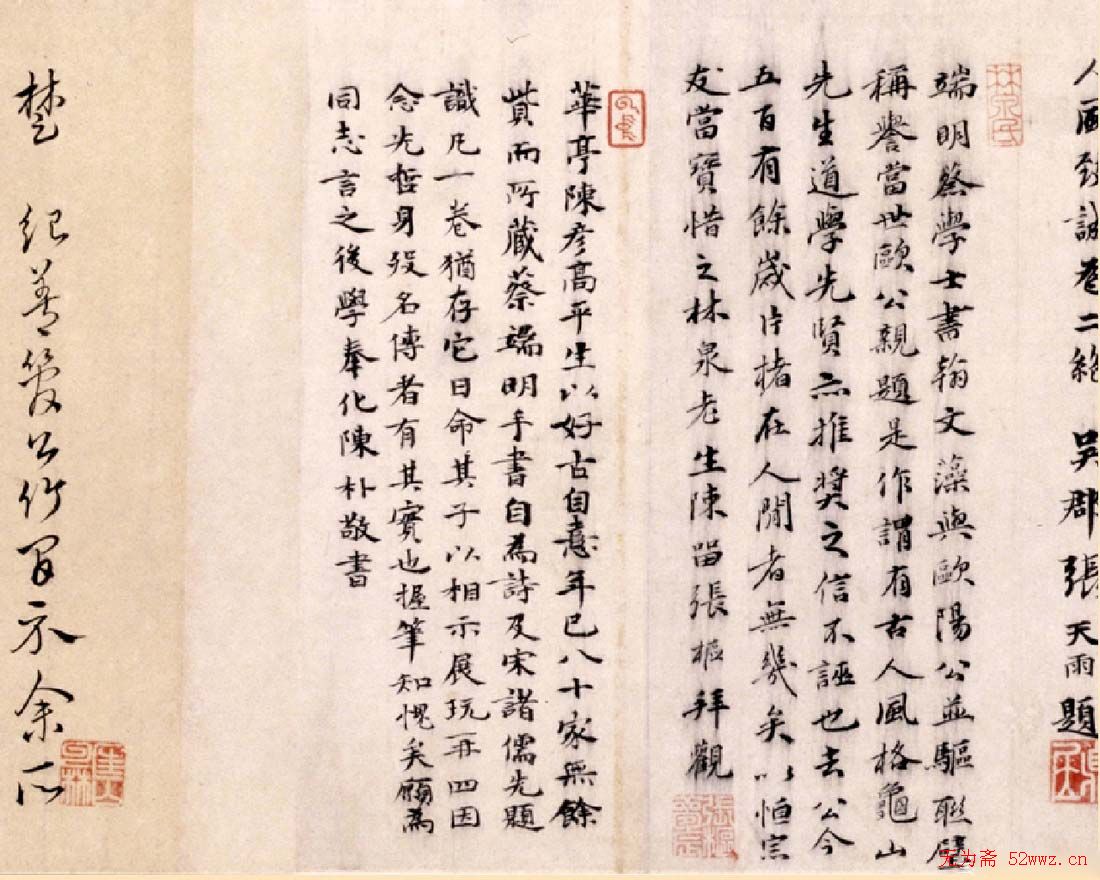 人風致詩卷二絕 吳郡張天雨題
端明蔡學士書翰文藻與歐陽公並驅聯璧
稱譽當世歐公親題是作謂有古人風格龜山
先生道學先賢亦推獎之信不誣也去公今
五百有餘歲片楮在人間者無幾矣以恒宗
友當寶惜之林泉老生陳留張樞拜觀
華亭陳彥高平生以好古自意年已八十家無餘
貲而所藏蔡端明手書自為詩及宋諸儒先題
識凡一卷猶存它日命其子以相示展玩再四因
念先哲身歿名傳者有其實也握筆知愧矣願為
同志言之後學奉化陳朴敬書
楚 紀善管公竹間示余所
无为斋 52wwz.cn